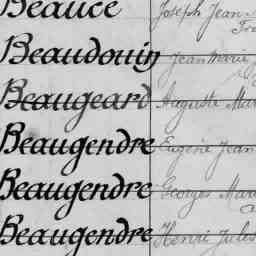 Beauce Joseph Jean
Beaudouin Jean Marie
Beaugeard Auguste Mar
Beaugendre Eugène Jean
Beaugendre Georges Mari
Beaugendre Henri Jules